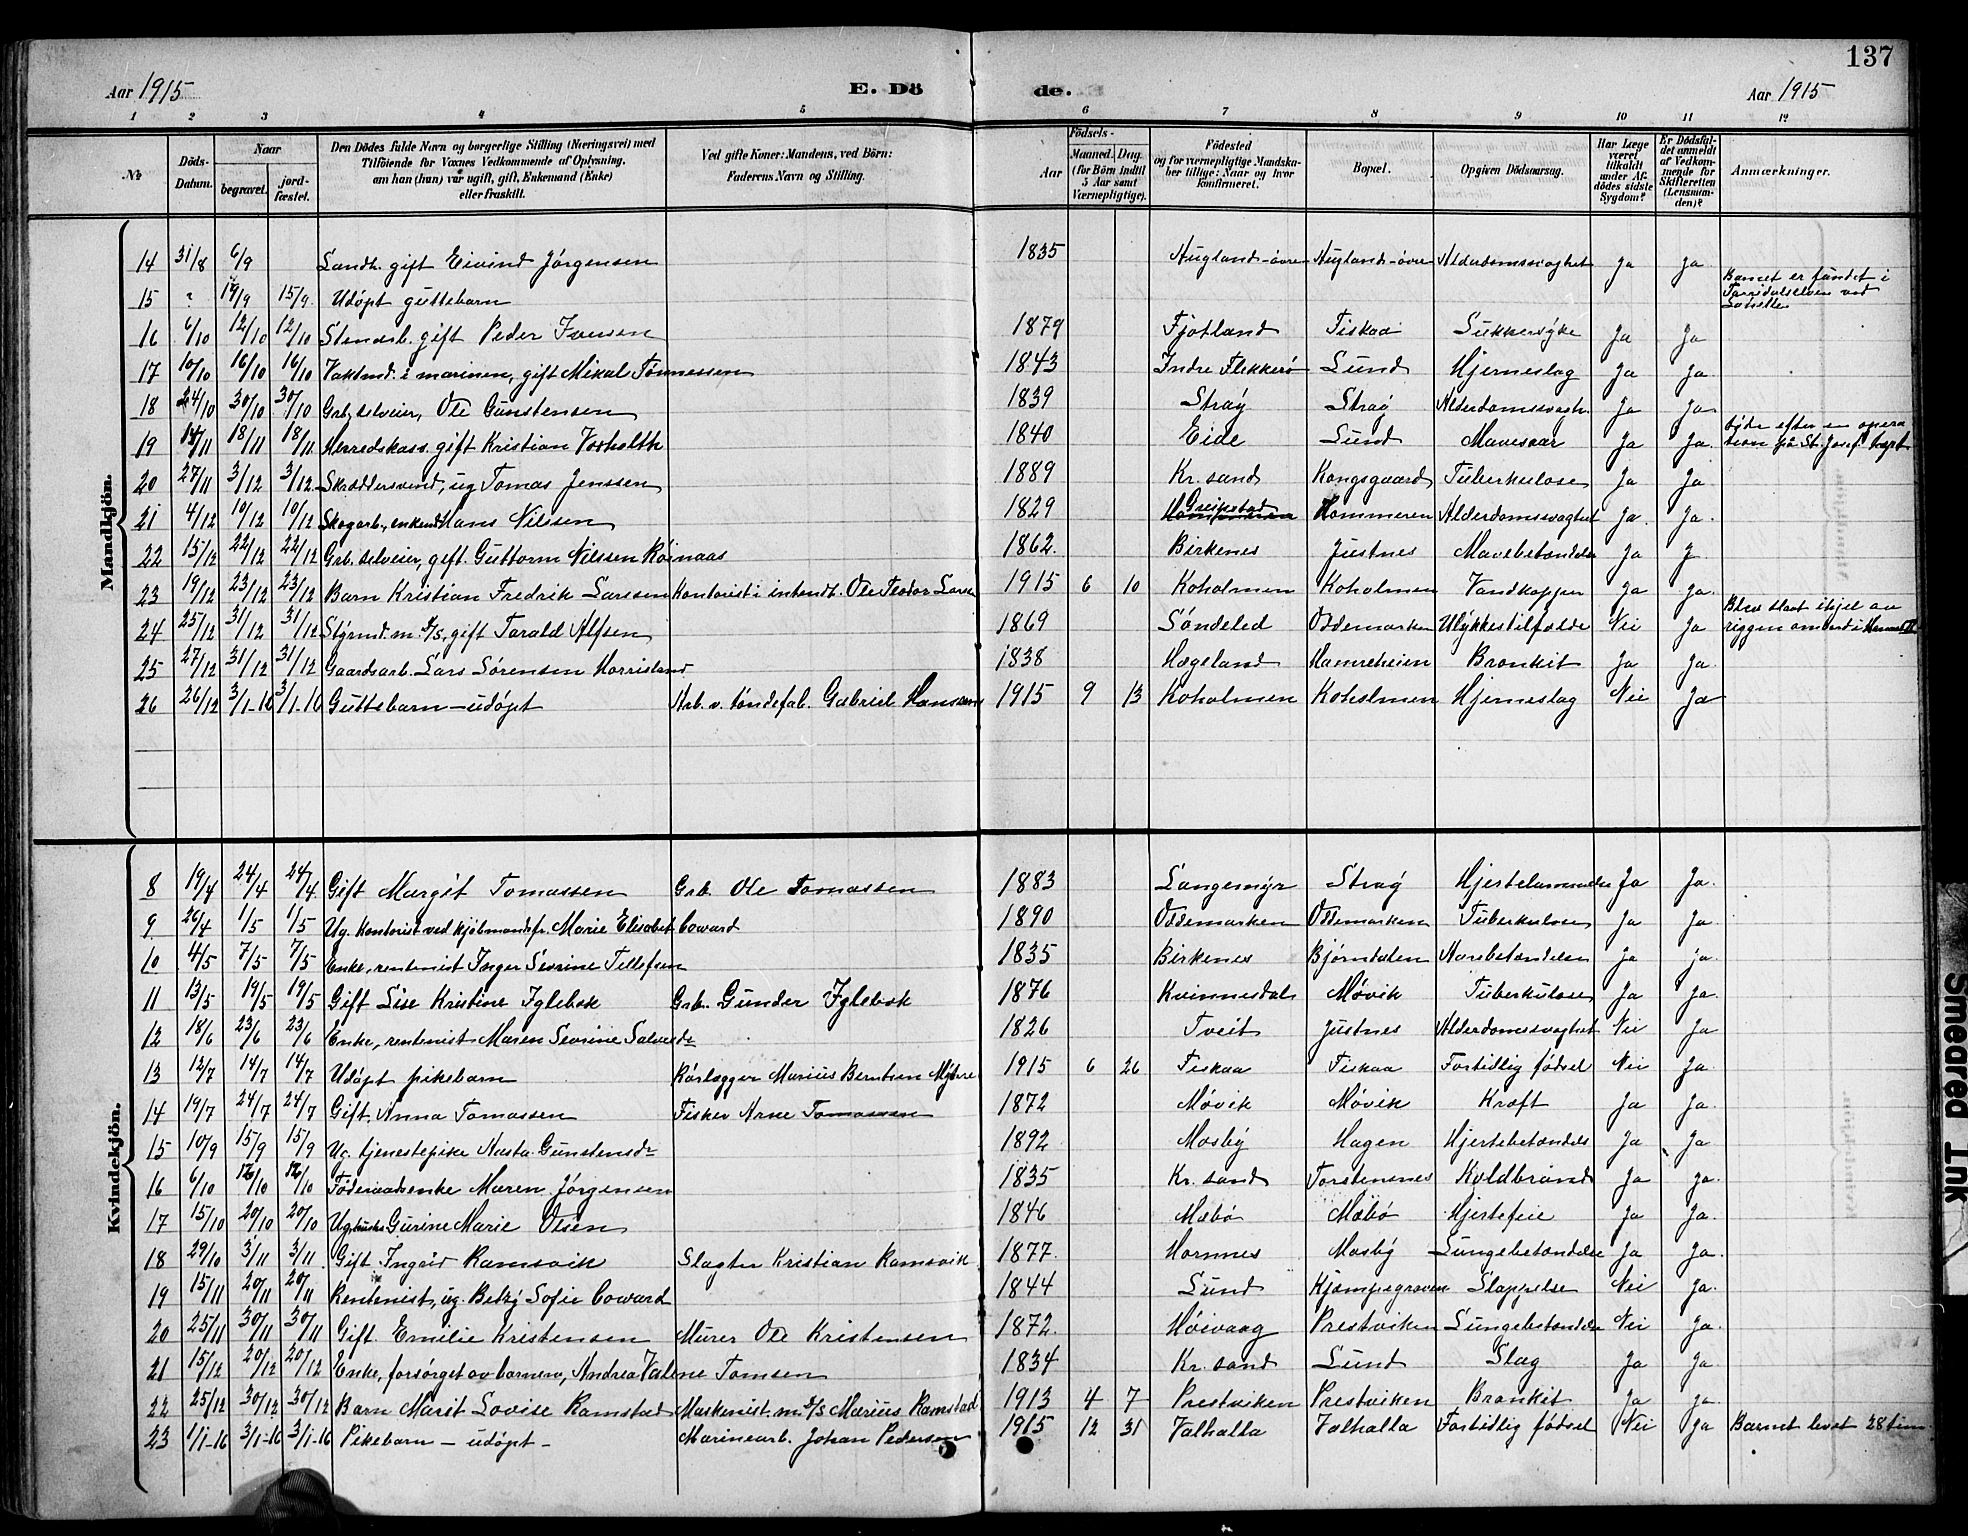 137
Aar 1915 E. Dö de. Aar 1915
1 2 3 4 5 6 7 8 9 10 11 12
№
Döds-Datum.
Naar
begravet.
jord-fæstet.
Den Dödes fulde Navn og borgerlige Stilling (Næringsvei) med
Tilföiende for Voxnes Vedkommende af Oplysning,
om han (hun) var ugift, gift, Enkemand (Enke)
eller fraskilt.
Ved gifte Koner: Mandens, ved Börn:
Faderens Navn og Stilling.
Födsels-
Aar
Maaned. Dag.
(for Börn indtil
5 Aar samt
Værnepligtige).
Födested
og for værnepligtige Mandska-
ber tillige: Naar og hvor
konfirmeret.
Bopæl.
Opgiven Dödsaarsag.
Har Læge
været
tilkaldt
under Af-
dödes sidste
Sygdom?
Er Dödsfal-
det anmeldt
af Vedkom-
mende for
Skifteretten
(Lensman-
den)?
Anmærkninger.
Mandkjön.
14 31/8 6/9 Landh. gift Eivind Jørgensen 1835 Augland-øvre Augland-øvre Alderdomssvaghet Ja Ja
15 ? 14/9 15/9. Udøpt guttebarn Barnet er fundet i
Torridalselven ved
16 6/10 12/10 12/10 Stenarb. gift Peder Iversen 1879 Fjotland Fiskaa Sukkersyke Ja Ja
17 10/10 16/10 16/10 Vaktmd. i marinen, gift Mikal Tønnessen 1843 Indre Flekkerø Lund Hjerneslag Ja Ja.
18 24/10 30/10 30/10 Grb. selveier, Ole Gunstensen 1839 Stray Stray Alderdomssvagh. Ja Ja
19 14/11 18/11 18/11 Herredskass. gift Kristian Vosholth 1840 Eide Lund Mavesaar Ja Ja. døde efter en opera
tion på St. Josef
20 27/11 3/12 3/12. Skræddersvend, ug Tomas Jenssen 1889 Kr. sand Kongsgaard Tuberkulose Ja Ja.
21 4/12 10/12 10/12 Skogarb., enkemd Hans Nilssen 1829 Greipstad Hommeren Alderdomsvaghet Ja. Ja.
22 15/12 22/12 22/12 Grb. selveier, gift. Guttorm Nilssen Røinaas 1862. Birkenes Justnes Mavebetændelse Ja J
23 19/12 23/12 23/12 Barn Kristian Fredrik Larssen Kontorist i intendt. Ole Teodor Larsen 1915 6 10 Koholmen Koholmen Vandkopper Ja Ja.
24 25/12 31/12 31/12 Styrmd. m. d/s, gift Torald Alfsen 1869 Söndeled Oddemarken Ulykkestilfælde Nei Ja Blev slaat ihjel av
riggen ombord i
25 27/12 31/12 31/12 Gaardsarb. Lars Sørensen Horrisland 1838 Hægeland Hamreheien Bronkit Ja Ja.
26 26/12 3/1-16 3/1-16 Guttebarn - udøpt Arb. v. tøndefab. Gabriel Hansen 1915 9 13 Koholmen Koholmen Hjerneslag Nei Ja
Kvindekjön.
8 19/4 24/4 24/4. Gift Margit Tomassen Grb. Ole Tomassen 1883 Langemyr Stray Hjertelammelse Ja Ja.
9 26/4 1/5 1/5 Ug. Kontorist ved kjøbmandsfr. Marie Elisabet Coward 1890 Oddemarken Oddemarken Tuberkulose Ja Ja.
10 4/5 7/5 7/5 Enke, rentenist Inger Sevrine Tellefsen 1835 Birkenes Bjørndalen Aarebetændelse Ja Ja.
11 13/5 19/5 19/5 Gift Lise Kristine Iglebæk Grb. Gunder Iglebæk 1876 Kvinnesdal Møvik Tuberkulose Ja Ja.
12 18/6 23/6 23/6 Enke, rentenist Maren Sevrine Salvesdr 1826 Tveit Justnes Alderdomssvaghet Nei Ja
13 12/7 14/7 14/7 Udøpt pikebarn Rørlægger Marius Berntsen 1915 6 26 Fiskaa Fiskaa Fortidlig fødsel Nei Ja.
14 19/7 24/7 24/7 Gift. Anna Tomassen Fisker Arne Tomassen 1872 Møvik Møvik Kræft Ja Ja.
15 10/9 15/9 15/9 Ug. tjenestepike Aasta Gunstensdr 1892 Mosby Hagen Hjertebetændels Ja Ja
16 6/10 12/10 12/10 Føderaadsenke Maren Jørgensen 1835 Kr. sand Torstenenes Koldbrand Ja Ja.
17 15/10 20/10 20/10 Ug Gurine Marie Olsen 1846 Mæbø Mæbø Hjertefeil Ja Ja.
18 29/10 3/11 3/11 Gift. Ingrid Ramsvik Slagter Kristian Ramsvik 1877. Hornnes Mosby Lungebetændelse Ja Ja.
19 15/11 20/11 20/11 Rentenist, ug. Betzy Sofie Coward 1844 Lund Kjempegraven Slappelse Nei Ja.
20 25/11 30/11 30/11 Gift. Emilie Kristensen Murer Ole Kristensen 1872. Høivaag Prestviken Lungebetændelse Nei Ja.
21 15/12 20/12 20/12 Enke, forsørget av barnene, Andrea Valene Tomsen 1834 Kr. sand Lund Slag Ja Ja
22 25/12 30/12 30/12 Barn Marit Lovise Ramstad Maskenist m. d/s Marius Ramstad 1913 4 7 Prestviken Prestviken Bronkit Ja Ja.
23 1/1-16 3/1-16 3/1-16 Pikebarn - udøpt - Marinearb. Johan Pedersen 1915 12 31 Valhalla Valhalla Fortidlig fødsel Nei Ja Barnet levet 28 tim
Smeared Ink